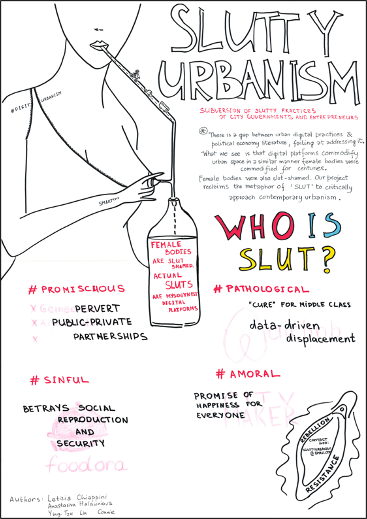 SLUTTY
URBANISM
SUBVERSION OF SLUTTY PRACTICES
OF CITY GOVERNMENTS, AND ENTREPRENEURS
There is a gap between urban digital practices &
political economy literature, failing at addressing it.
What we see is that digital platforms commodify
urban space in a similar manner female bodies were
commodified for centuries.
Female bodies were also slut-shamed. Our project
reclaims the metaphor of 'SLUT' to critically
approach contemporary urbanism.
WHO IS
SLUT?
URBANISM
FEMALE
BODIES
ARE SLUT
SHAMED.
ACTUAL
SLUTS
ARE
DIGITAL
PLATFORMS
# PROMISCUOUS
PERVERT
PUBLIC-PRIVATE
PARTNERSHIPS
# PATHOLOGICAL
"CURE" FOR MIDDLE CLASS
data-driven
displacement
# SINFUL
BETRAYS SOCIAL
REPRODUCTION
AND
SECURITY
foodora
# AMORAL
PROMISE OF
HAPPINESS FOR
EVERYONE
REBELLION
RESISTANCE
Authors: Letizia Chiappini